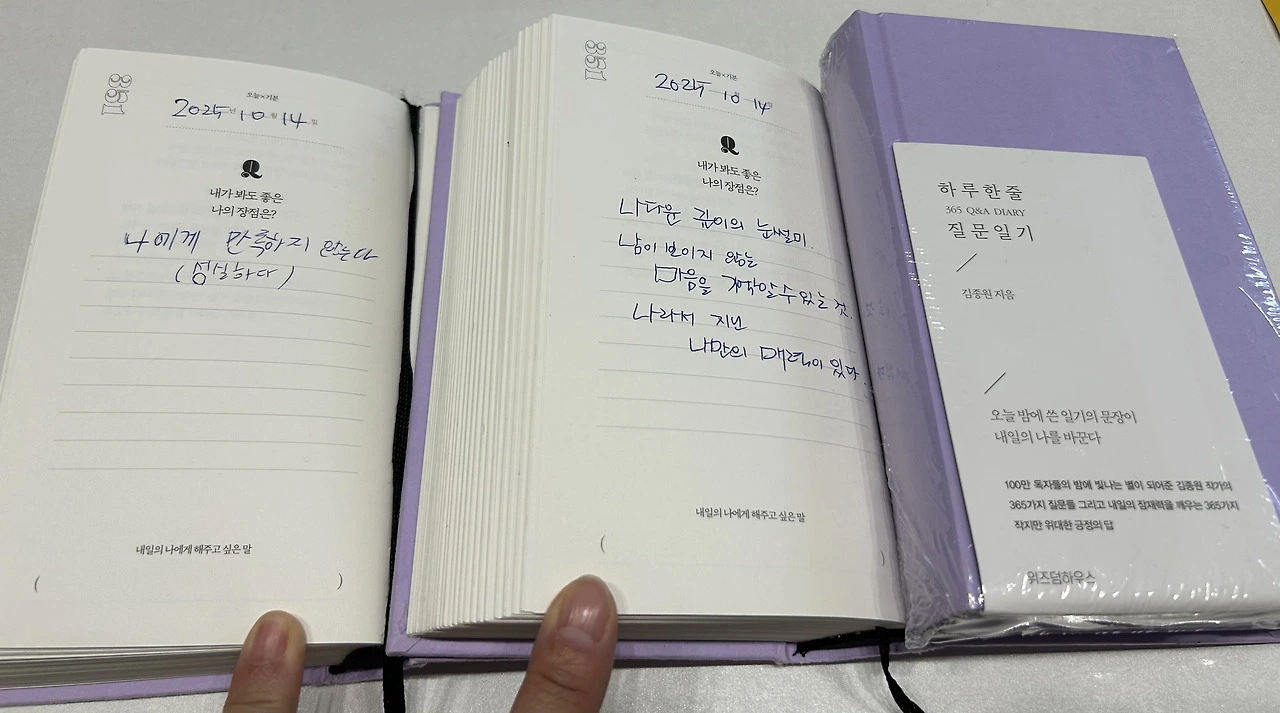 351
오늘×기분
2025년 10월 14일
Q
내가 봐도 좋은
나의 장점은?
나에게 만족하지 않는다
(성실하다)
내일의 나에게 해주고 싶은 말
( )
351
오늘×기분
2025 10월 14일
Q
내가 봐도 좋은
나의 장점은?
나다운 깊이의 눈썰미.
남이 보이지 않는
마음을 짐작할 수 있는 것.
나라서 지닌
나만의 매력이 있다.
내일의 나에게 해주고 싶은 말
( )
하루 한 줄
365 Q&A DIARY
질문 일기
김종원 지음
오늘 밤에 쓴 일기의 문장이
내일의 나를 바꾼다
100만 독자들의 밤에 빛나는 별이 되어준 김종원 작가의
365가지 질문들 그리고 내일의 잠재력을 깨우는 365가지
작지만 위대한 긍정의 답
위즈덤하우스